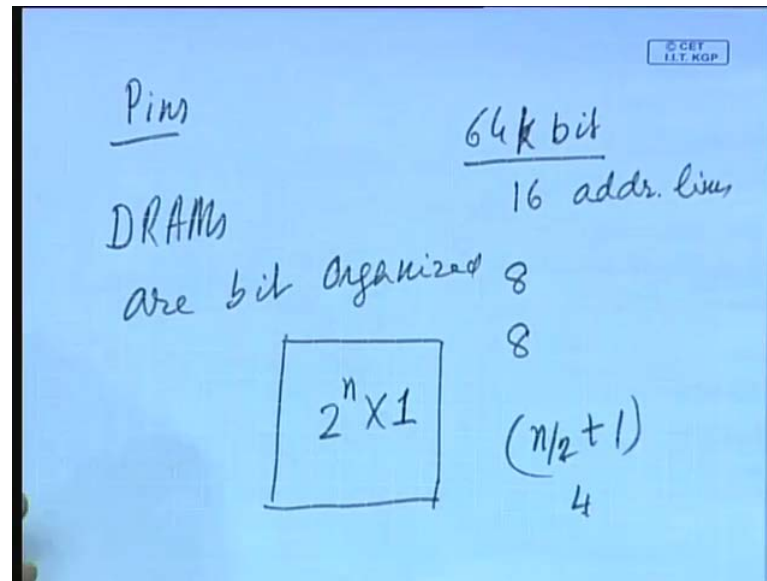 © CET
I.I.T. KGP
Pins
64k bit
16 addr. lines
DRAMs
are bit organized
8
8
2^n X 1
(n/2 + 1)
4